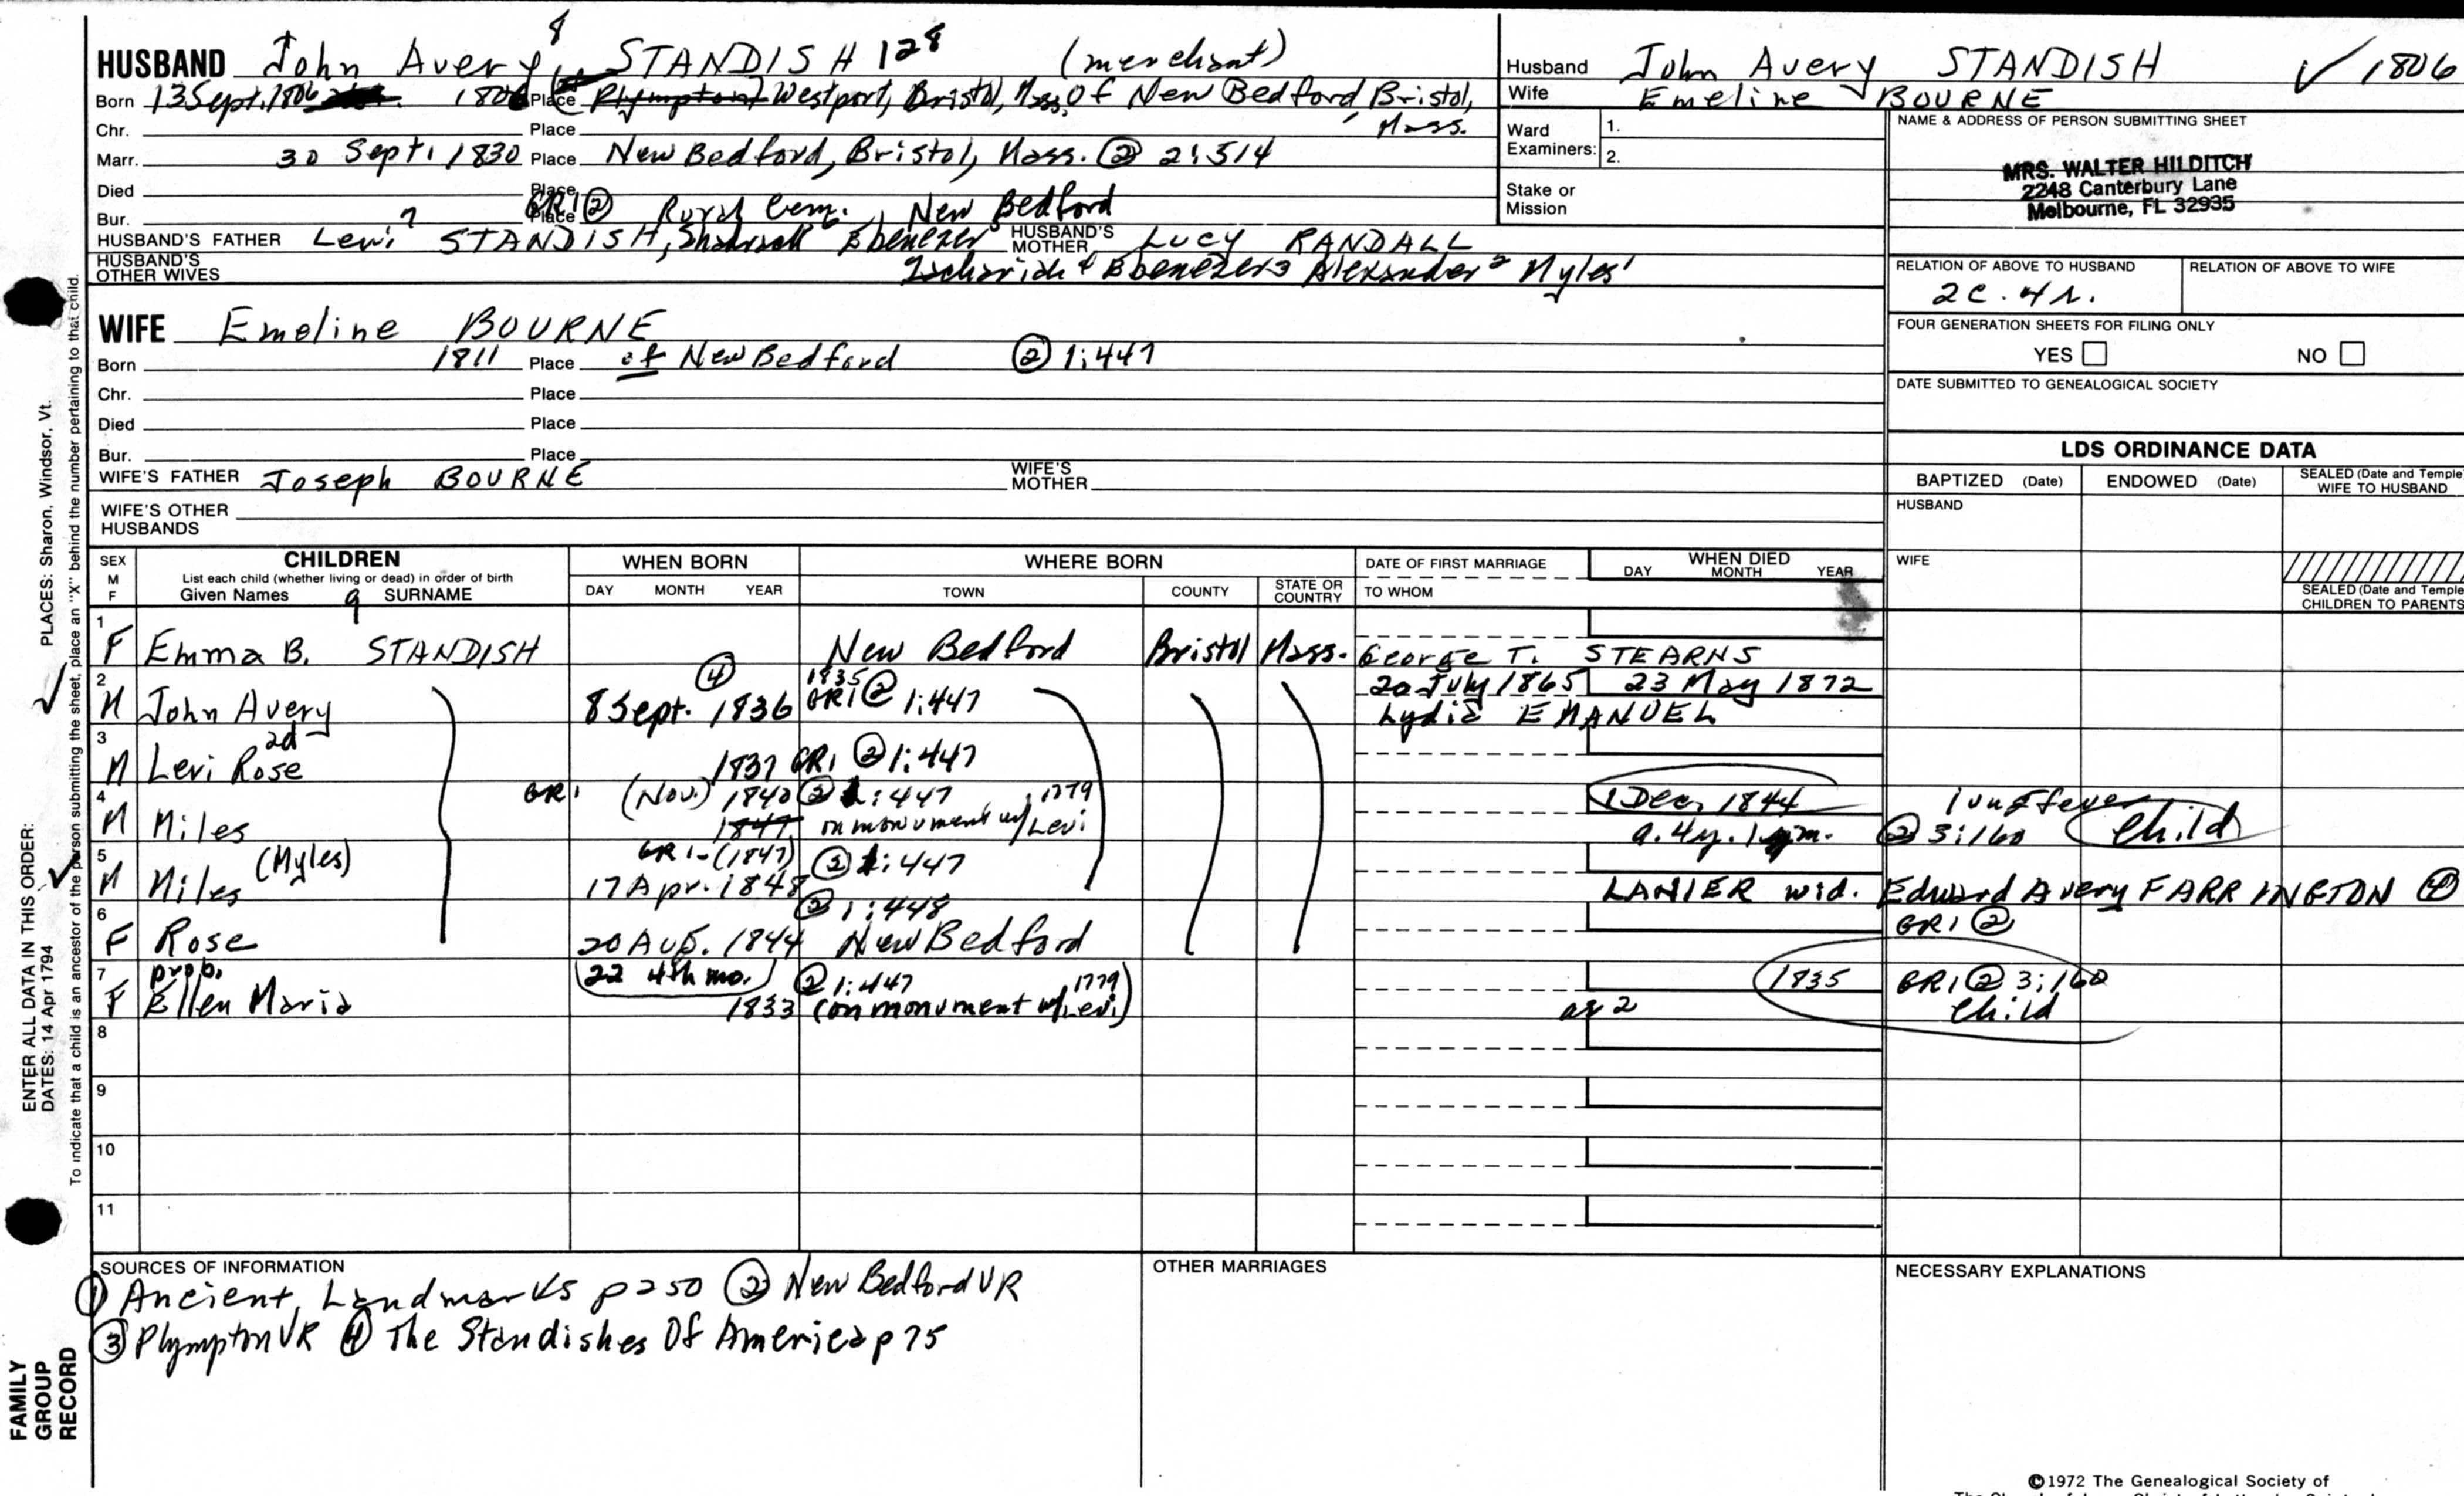 HUSBAND John Avery 8 STANDISH 128 (merchant)
Born 13 Sept. 1806 1806 Place Plympton Westport, Bristol, Mass. Of New Bedford, Bristol, Mass.
Chr. Place
Marr. 30 Sept. 1830 Place New Bedford, Bristol, Mass. ② 2:514
Died Place
Bur. Place GR1 ② Rural Cem., New Bedford
HUSBAND'S FATHER Levi 7 STANDISH, Ebenezer HUSBAND'S MOTHER LUCY RANDALL
HUSBAND'S OTHER WIVES Zachariah 4 Ebenezer 3 Alexander 2 Myles 1
Husband John Avery STANDISH ✓ 1806
Wife Emeline BOURNE
Ward Examiners: 1.
2.
Stake or Mission
NAME & ADDRESS OF PERSON SUBMITTING SHEET
MRS. WALTER HILDITCH
2248 Canterbury Lane
Melbourne, FL 32935
RELATION OF ABOVE TO HUSBAND RELATION OF ABOVE TO WIFE
2c. 4r.
FOUR GENERATION SHEETS FOR FILING ONLY
YES NO
DATE SUBMITTED TO GENEALOGICAL SOCIETY
WIFE Emeline BOURNE
Born 1811 Place of New Bedford ② 1:447
Chr. Place
Died Place
Bur. Place
WIFE'S FATHER Joseph BOURNE WIFE'S MOTHER
WIFE'S OTHER HUSBANDS
LDS ORDINANCE DATA
BAPTIZED (Date) ENDOWED (Date) SEALED (Date and Temple WIFE TO HUSBAND
HUSBAND
WIFE
SEALED (Date and Temple CHILDREN TO PARENTS
SEX M F CHILDREN WHEN BORN WHERE BORN DATE OF FIRST MARRIAGE WHEN DIED
List each child (whether living or dead) in order of birth
Given Names 9 SURNAME DAY MONTH YEAR TOWN COUNTY STATE OR COUNTRY TO WHOM DAY MONTH YEAR
1 F Emma B. STANDISH New Bedford Bristol Mass. George T. STEARNS
2 M John Avery ④ 8 Sept. 1836 1835 GR1 ② 1:447 20 July 1865 23 May 1872
Lydia EMANUEL
3 M Levi Rose 2d 1837 GR1 ② 1:447
4 M Miles GR1 (Nov.) 1840 ② 1:447 1 Dec. 1844 lung fever
1847 on monument w/ Levi 1779 a. 4y. 1m. ② 3:160 Child
5 M Miles (Myles) GR1-(1847) ② 1:447
17 Apr. 1848 LANIER wid. Edward Avery FARRINGTON ④
6 F Rose 20 Aug. 1844 ② 1:448 New Bedford GR1 ②
7 F prob. Ellen Maria 22 4th mo. ② 1:447 1835 GR1 ② 3:160
1833 (on monument w/Levi 1779) as 2 Child
8
9
10
11
SOURCES OF INFORMATION
① Ancient Landmarks p 250 ② New Bedford VR
③ Plympton VR ④ The Standishes Of America p 75
OTHER MARRIAGES
NECESSARY EXPLANATIONS
©1972 The Genealogical Society of
ENTER ALL DATA IN THIS ORDER:
DATES: 14 Apr 1794 PLACES: Sharon, Windsor, Vt.
To indicate that a child is an ancestor of the person submitting the sheet, place an "X" behind the number pertaining to that child.
FAMILY GROUP RECORD